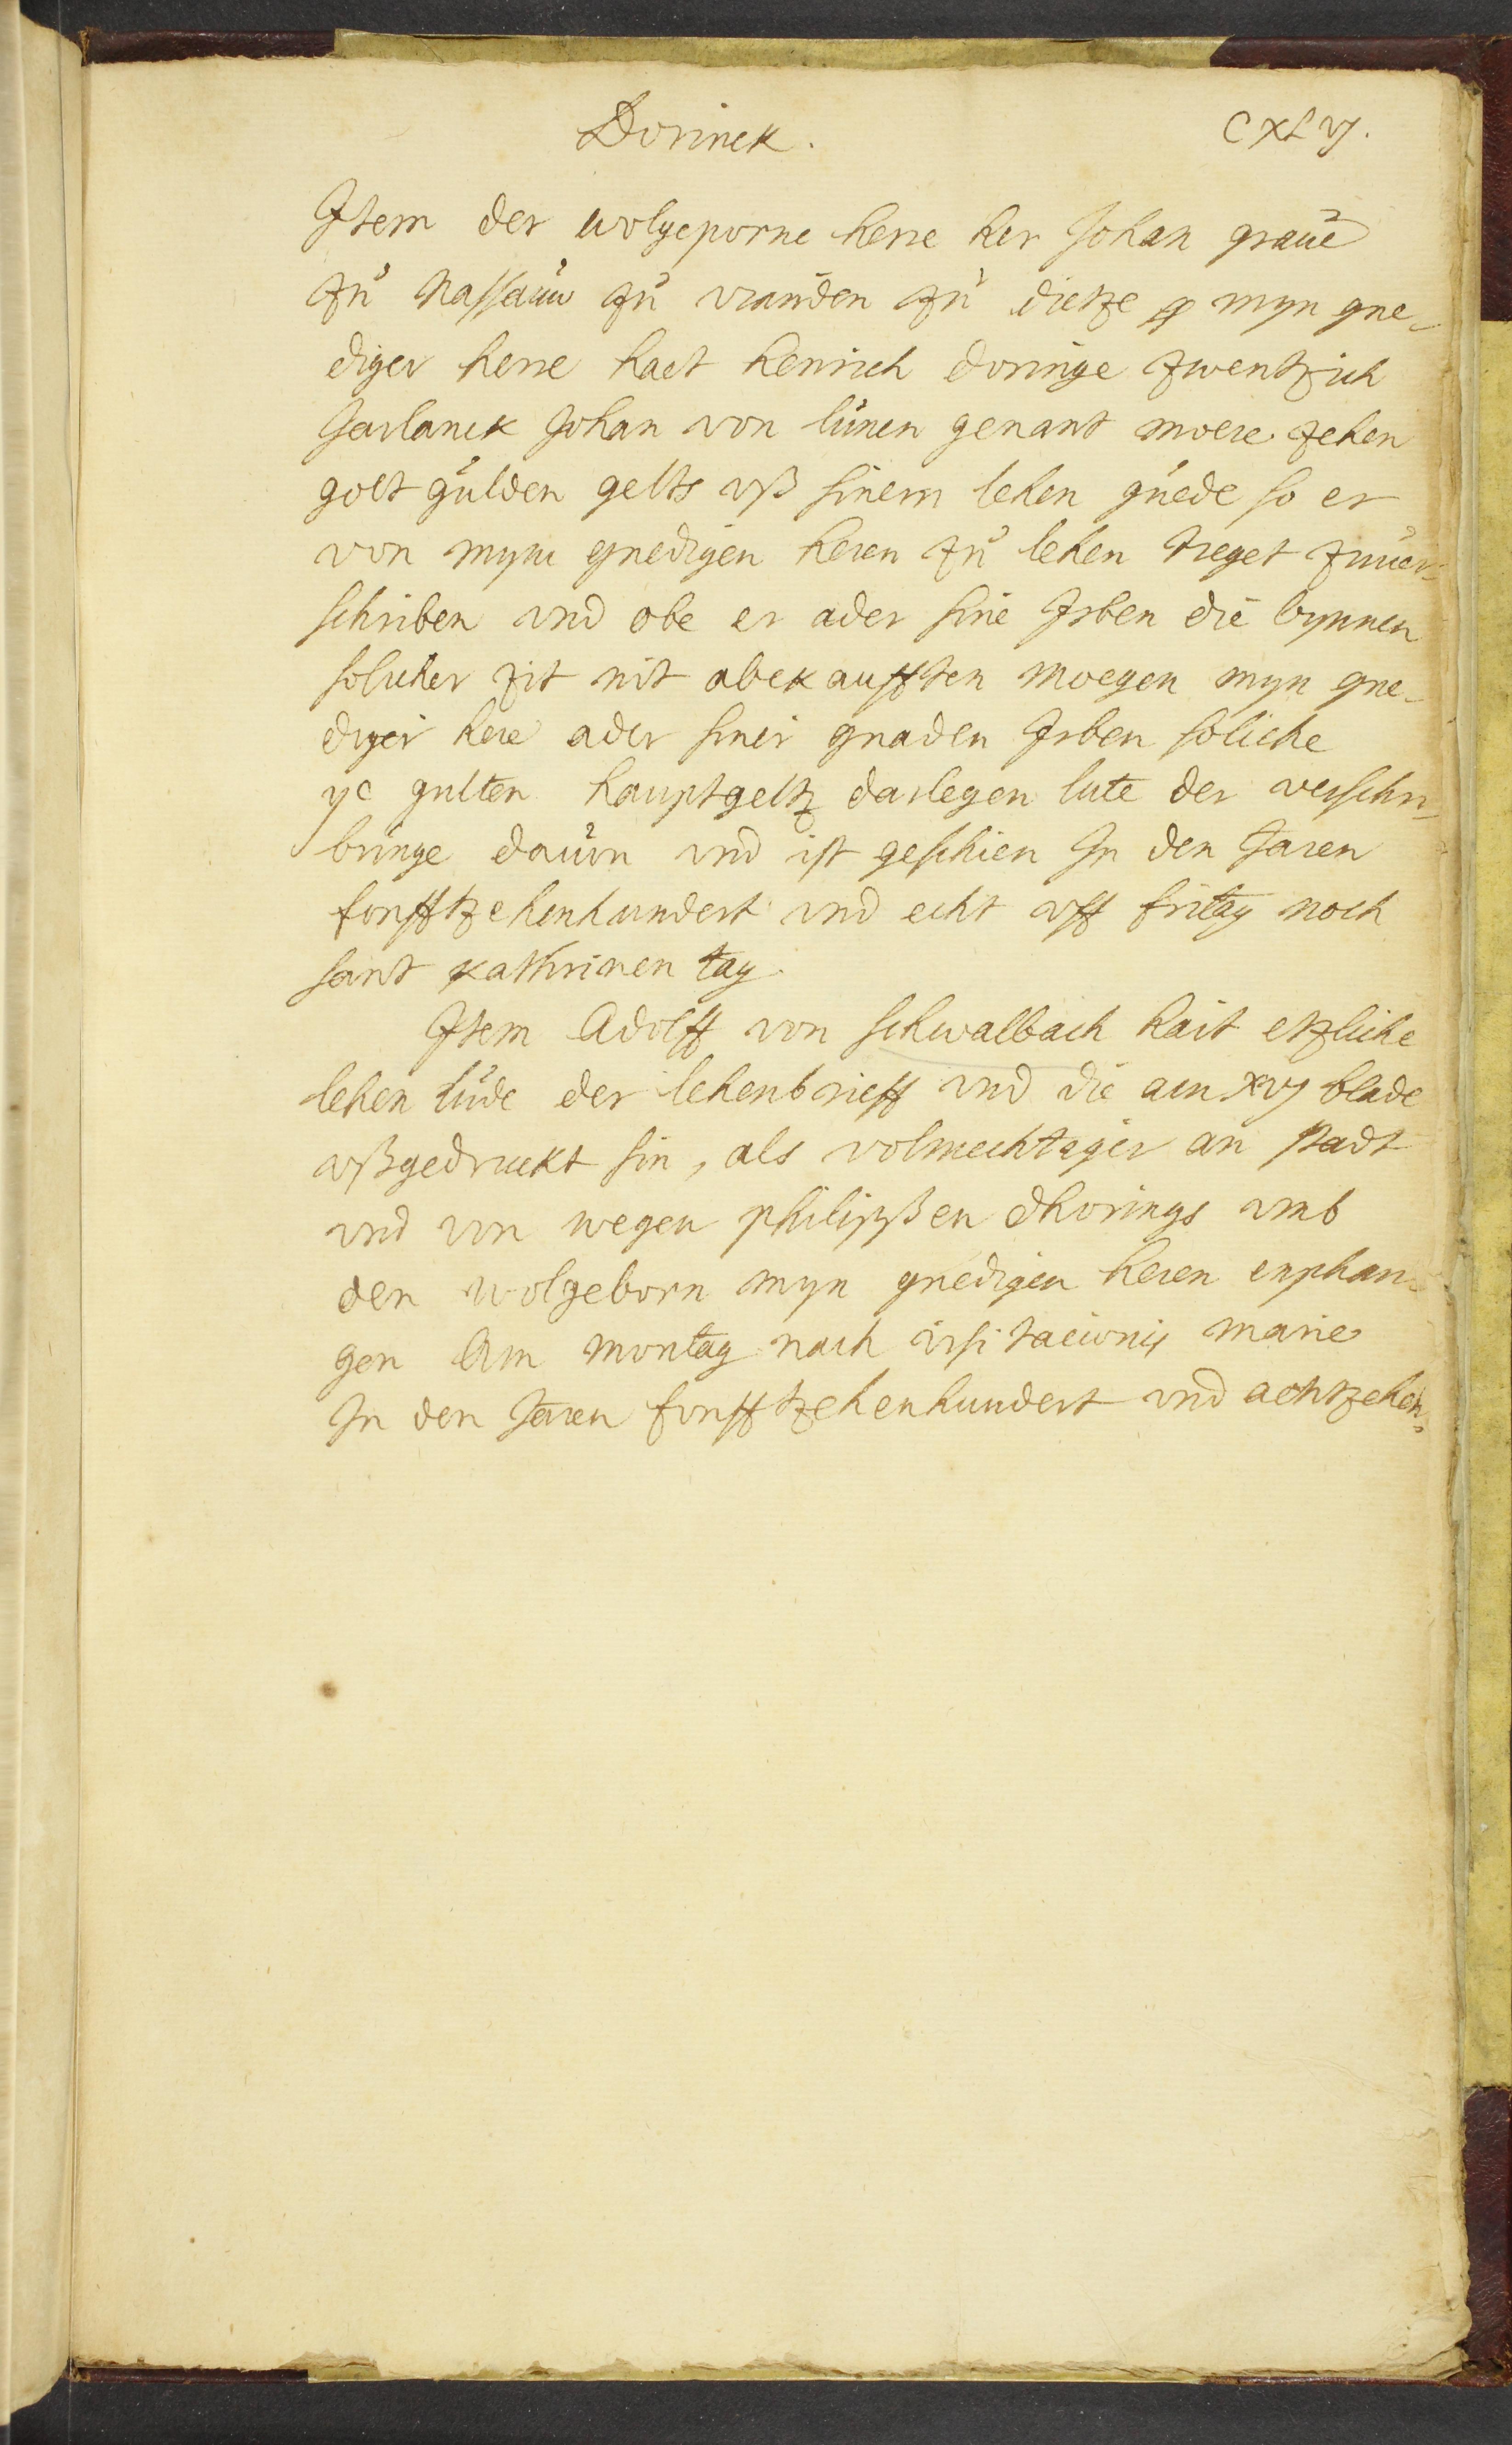 Dorinck.
CXLVJ.
Item der wolgeporne herre her Johan graue
zu Nassauw zu vianden zu dietze myn gne-
diger herre hait henrich doringe zwentzich
Jarlanck Johan von lunen genant moere zehen
golt gulden gelts vß sinem lehen guede so er
von mym gnedigen heren zu lehen treget zuuer-
schriben vnd obe er ader sine Erben die bynnen
solicher zit nit abekaufften moegen myn gne-
diger here ader siner gnaden Erben soliche
ijc gulten hauptgeltz darlegen lute der verschri-
bunge dauon vnd ist geschien In den Jaren
fonfftzehenhundert vnd echt vff fritag noch
sant kathrinen tag.
Item Adolff von schwalbach hait etzliche
lehen lude der lehenbrieff vnd die am xvj blade
vßgedruckt sin, als volmechtiger an stadt
vnd von wegen philipßen dhorings vmb
den wolgeborn myn gnedigen heren enphan-
gen Am montag nach visitacionis marie
In den Jaren fonfftzehenhundert vnd achtzehen.